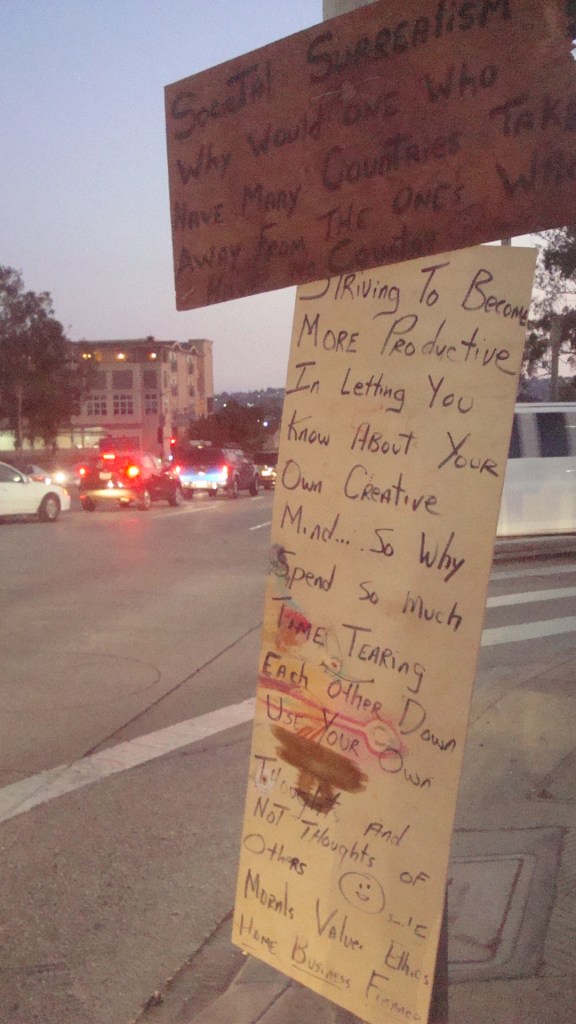 Societal Surrealism
Why Would One Who
Have Many Countries Take
Away From The One's Who
Have no Country
Striving To Become
More Productive
In Letting You
Know About Your
Own Creative
Mind... So Why
Spend So Much
Time Tearing
Each Other Down
Use Your Own
Thoughts And
Not Thoughts of
Others
Morals Value. Ethics
Home Business Finance